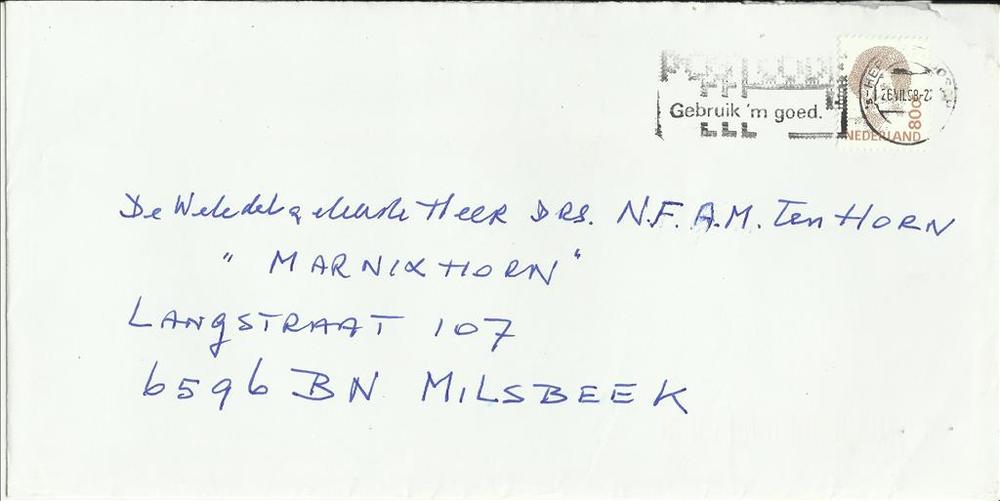 POSTCODE
Gebruik 'm goed.
26.VII.98-2
80c
NEDERLAND
De Weledelgeleerde Heer DRS. N.F.A.M. Ten HORN
" MARNIXHORN "
LANGSTRAAT 107
6596 BN MILSBEEK